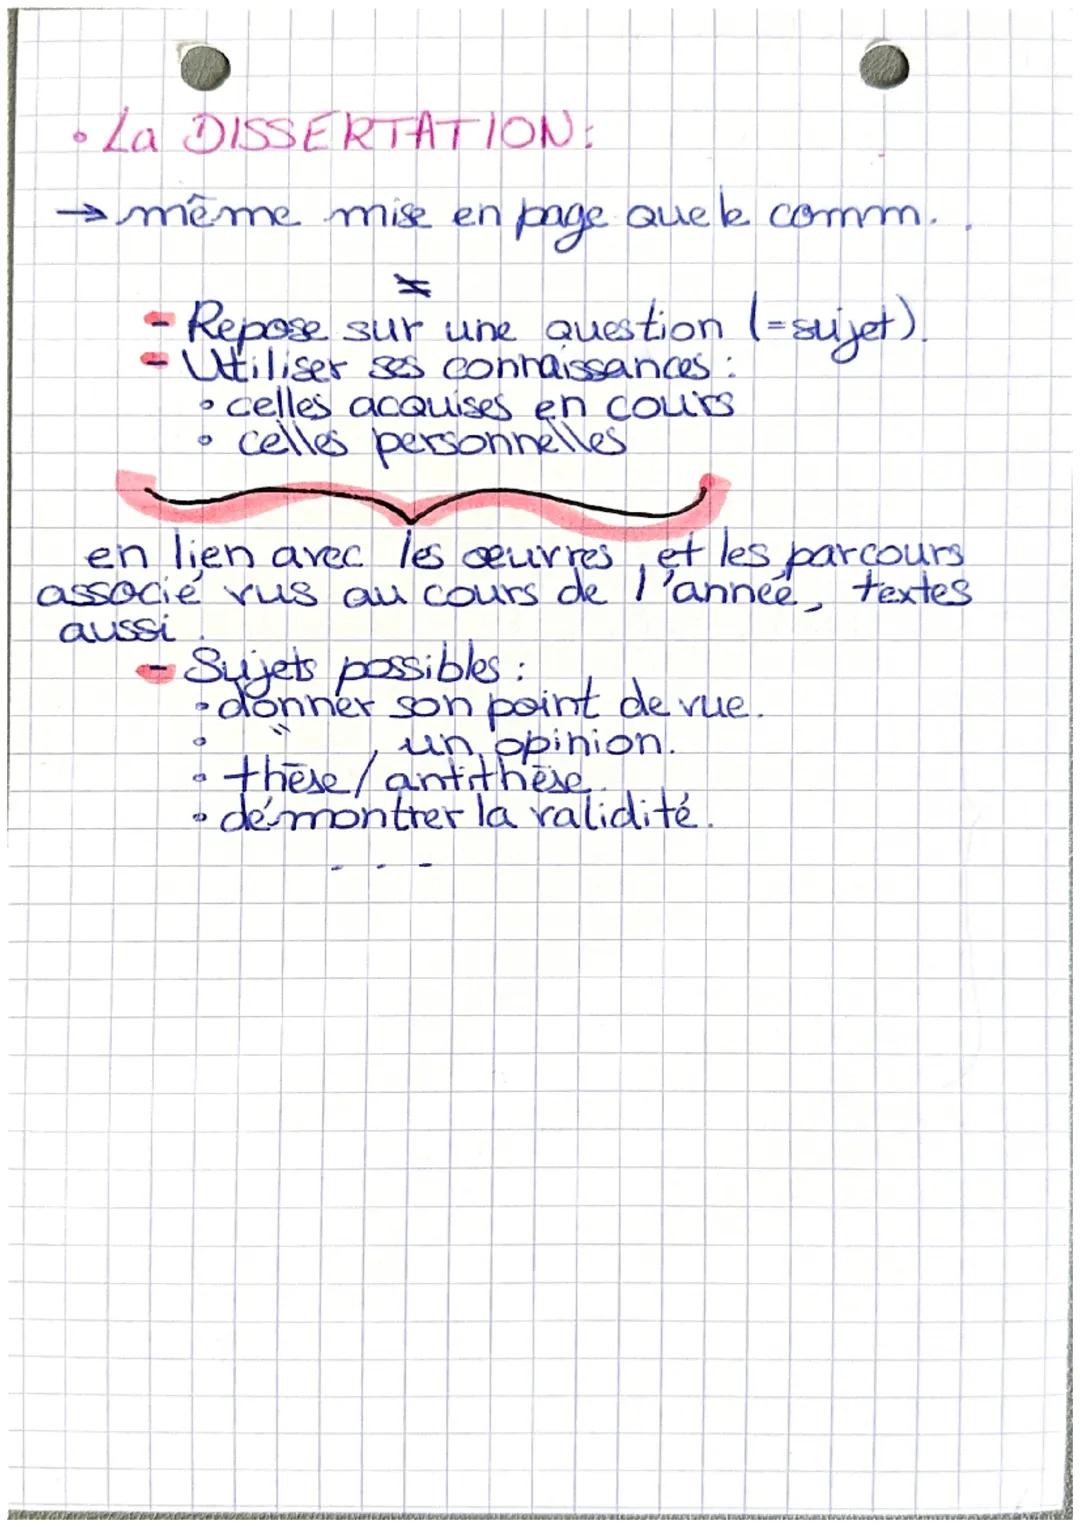 • La DISSERTATION:
→ même mise en page que le comm.
≠
- Repose sur une question (=sujet).
- Utiliser ses connaissances :
• celles acquises en cours
• celles personnelles
en lien avec les œuvres, et les parcours
associé vus au cours de l'année, textes
aussi.
- Sujets possibles :
• donner son point de vue.
• " un opinion.
• thèse/antithèse.
• démontrer la validité.
- - -